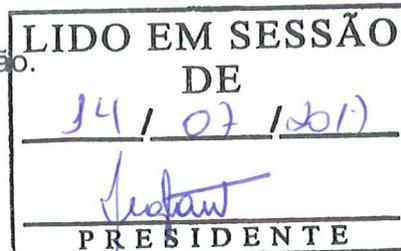 LIDO EM SESSÃO
ão.
DE
14 / 07 / 2017
PRESIDENTE